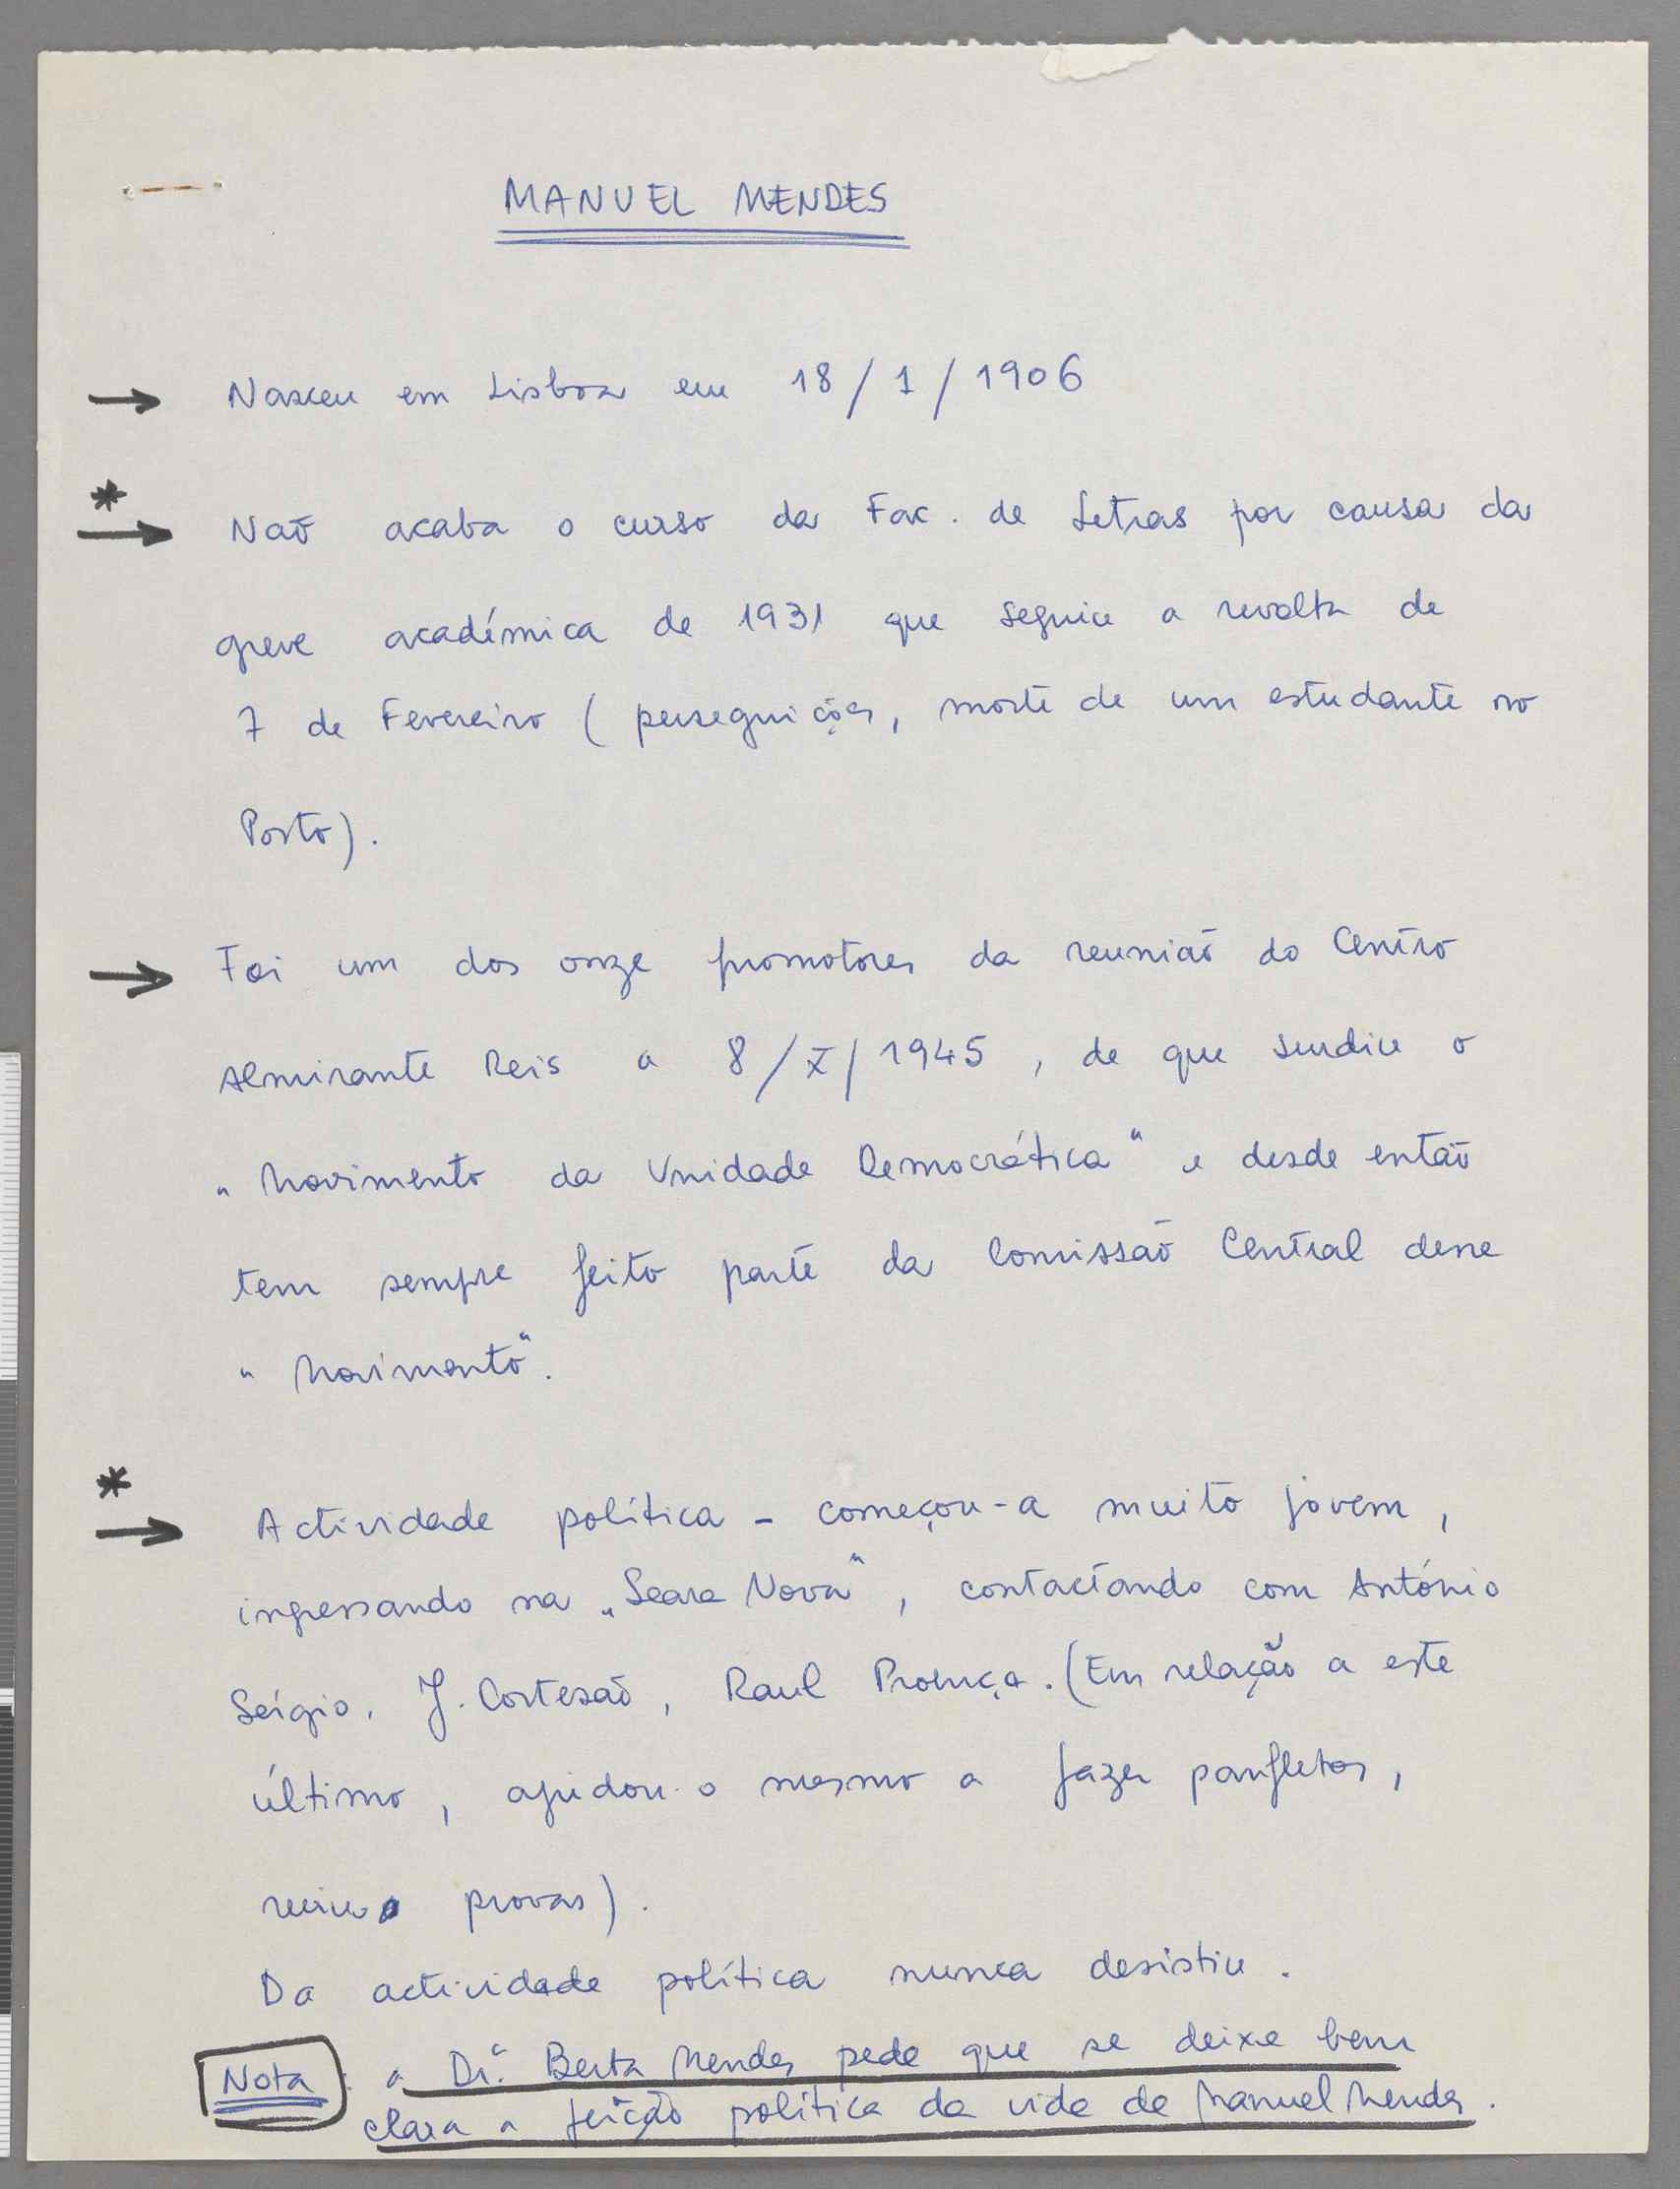 MANUEL MENDES
→ Nasceu em Lisboa em 18/1/1906
*
→ Não acaba o curso da Fac. de Letras por causa da
greve académica de 1931 que seguiu a revolta de
7 de Fevereiro (perseguições, morte de um estudante no
Porto).
→ Foi um dos onze promotores da reunião do Centro
Almirante Reis a 8/X/1945, de que surdiu o
"Movimento da Unidade Democrática" e desde então
tem sempre feito parte da Comissão Central desse
"Movimento".
*
→ Actividade política - começou-a muito jovem,
ingressando na "Seara Nova", contactando com António
Sérgio, J. Cortesão, Raul Proença. (Em relação a este
último, ajudou-o mesmo a fazer panfletos,
reviu provas).
Da actividade política nunca desistiu.
Nota: a Dr.ª Berta Mendes pede que se deixe bem
clara a feição política da vida de Manuel Mendes.